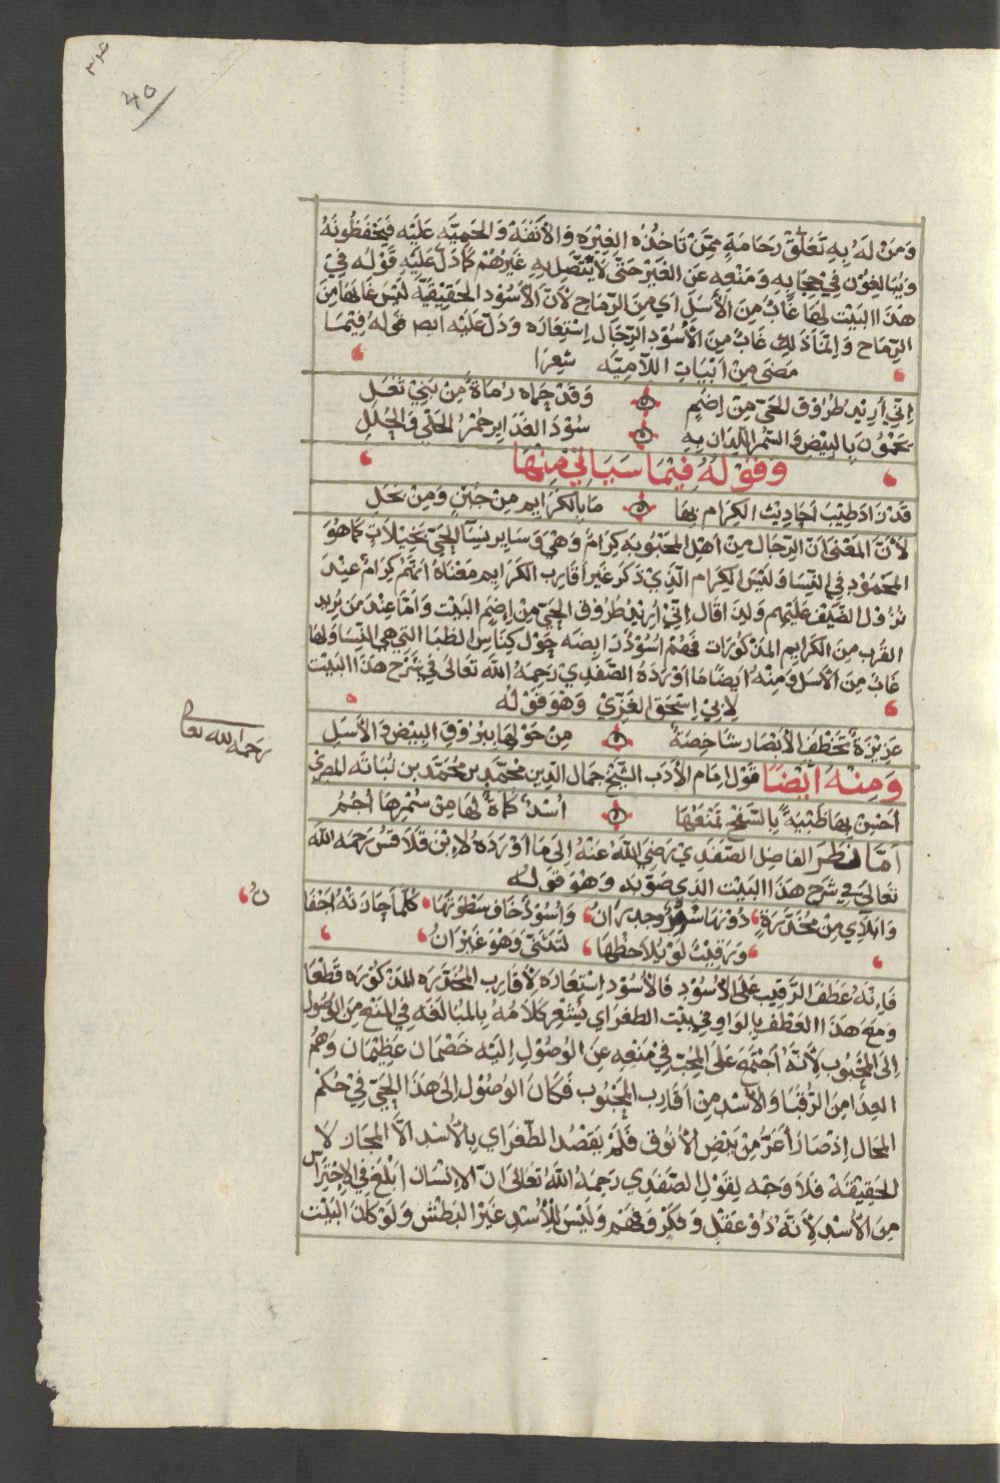 40
وَمَنْ لَهُ بِهِ تَعَلُّقُ رَحَامَةٍ مِمَّنْ تَاخُذُه الغِيْرَه وَالأَنَفَة وَالحَمِيَّه عَلَيْه فَيَحْفَظُونَهُ
وَيُبَالِغُوْن فِيْ حِجَابِهِ وَمَنْعِه عَنِ الغَيْرِ حَتَّى لَايَتَّصِل بِهِ غَيْرُهُمْ كَمَا دَلَّ عَلَيْهِ قَوْلُه فِيْ
هَذَا البَيْت لهَا غَابٌ مِنَ الأَسَلِ اي مِنَ الرِّمَاح لأَنّ الأُسُوْد الحَقِيْقِيَّة لَيْسَ غَابهَا مِنَ
الرِّمَاح وَاِنَّمَا ذَلِكَ غَابٌ مِنَ الأُسُوْد الرِّجَال اِسْتِعَارَه وَدَلّ عَلَيْه ايض قَولهُ فِيْمَا
مَضَى مِنْ اَبْيَاتِ اللآمِيَّه شِعرًا
اِنِّي اُرِيْد طُرُوْقَ الحَيِّ مِنْ اِضَمٍ وَقَدْ حِمَاه رُمَاةٌ مِنْ بَنِيْ ثُعَلِ
يَحْمُوْنَ بِالبِيْضِ وَ السُّمْرِ اللِّدَانِ بِهِ سُوْدَ الغَدَايِر حُمْرُ الحَلْي وَالحُلَلِ
وَقَوْلهُ فِيْمَا سَيَاتِيْ مِنْهَا
قَدْ زَادَ طِيْبَ اَحَادِيْث الكِرَام بِهَا مَابِالكَرَايِمِ مِنْ جُبْنٍ وَمِنْ بَخَلِ
لأَنَّ المَعْنَى انّ الرِّجَال مِنْ اَهْلِ المَحْبُوبَه كِرَامٌ وَهْيَ وَسَايِر نِسَآ الحَيّ بَخِيْلَاتٌ كَمَا هُوَ
المَحْمُوْد فِي النِّسَا وَلَيْسَ الكِرَام الَّذِيْ ذَكَر غَيْر اَقَارِب الكَرَايِم مَعْنَاهُ انَّهُمْ كِرَامٌ عِنْدَ
نُزُوْلِ الضَّيْف عَلَيْهِم وَلِذَا قَالَ اِنِّيْ اُرِيْدُ طُرُوْقَ الحَيِّ مِنْ اِضَمٍ البَيْت وَاَمَّا عِنْدَ مَن يُرِيد
القُرْب مِنَ الكَرَايِمِ المَذْكُوْرَات فَهُمْ اُسُوْدٌ رَابِضَه حَوْل كِنَاسِ الظِّبَا التي هِيَ النِّسَا وَلهَا
غَابٌ مِنَ الأَسَل وَمِنْهُ اَيْضًا مَا اَوْرَدَهُ الصَّفَدِيْ رَحِمَهُ اللَّه تَعَالَى فِيْ شَرْح هَذَا البَيْت
لِاَبِيْ اِسْحَق الغَزِّيّ وَهُوَ قَوْلُه
عَزِيْزَةٌ تَخْطَفُ الأَبْصَار شَاخِصَةً مِنْ حَوْلِهَا بِبُرُوْقِ البِيْضِ وَ الأَسَلِ
رَحِمَهُ الله تعالى
وَمِنْهُ اَيْضًا قَوْل اِمَام الأَدَب الشَّيْخ جمال الدِّين مُحَمَّد بن مُحَمَّد بن نُبَاتَه المصريْ
اَحْسِنْ بِهَا ظَبْيَةً بِالسَّفْحِ تمْنَعُهَا اُسْدٌ كُمَاةٌ لهَا مِنْ سُمْرِهَا اُجُمُ
اَمَّا نَظَرَ الفَاضِل الصَّفَدِيْ رَضِيَ اللَّهُ عَنْهُ إِلَى مَا اَوْرَدَهُ لاِبْنِ قَلَاقِسْ رَحِمَه اللهُ
تَعَالَى فِيْ شَرْح هَذَا البَيْت الذي صَوَّبَه وَهُوَ قَوْلُه
وَابِلَآيِ مِنْ مُخَدَّرَةٍ دُوْنهَا سُمْرٌ وَجدرَانُ وَاُسُوْدٌ خَافَ سَطْوَتهَا كُلّمَا جَارَتْهُ اَجْفَا
نُ
وَرَقِيْبٌ لَوْ يُلَاحِظُهَا لَتَثَنَّى وَهْوَ غَيْرَانُ
فَاِنَّهُ عَطَف الرَّقِيْبَ عَلَى الأُسُوْدِ فَالأُسُوْدِ اِسْتِعَارَه لِأَقَارِب المُخَدَّرَه المذْكُوْرَه قَطْعًا
وَمَعَ هَذَا العَطْف بِالوَاوِ فَفِي بَيْت الطغرَاي يُشْعِر كَلَامُهُ بِالمُبَالَغَه فِي المَنْعِ مِن الوُصُول
اِلى المَحْبُوب لأَنَّهُ اجْتَمَع عَلَى المُحِبِّ فِيْ مَنْعِهِ عَنِ الوُصُوْلِ اِلَيْه خَصْمَان عَظِيْمَان وَهُمُ
العِدَا مِنَ الرُّقَبَا وَالأُسْد مِنْ اَقَارِب المَحْبُوب فَكَانَ الوُصُوْل اِلَى هَذَا الحَيِّ فِيْ حُكْم
المحَالِ اِذْ صَارَ اَعَزّ مِنْ بَيْضِ الأَنُوْقِ فَلَمْ يَقْصُد الطّغرَاي بِالأُسْد اِلّا المَجَاز لَا
الحَقِيْقَة فَلَا وَجْه لِقَوْلِ الصَّفَدِي رَحِمَهُ اللَّهُ تَعَالَى انّ الاِنْسَان اَبْلَغ فِي الاِحْتِرَاس
مِنَ الأُسْدِ لأَنَّهُ ذُوْ عَقْلٍ وَفِكَرٍ وَفَهْمٍ وَلَيْسَ لِلأُسْدِ غَيْر البَطْش وَلَوْ كَانَ البَيْت